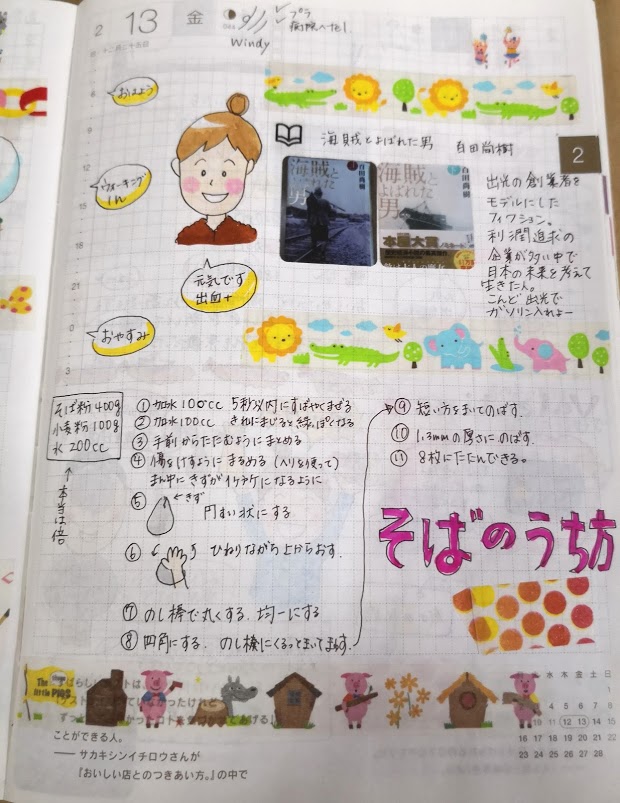 2 13 金
Windy
プラ
病院へGo!
おはよう
ウォーキング
1h
元気です
出血+
おやすみ
6
9
12
15
18
21
0
3
海賊とよばれた男 百田尚樹
海賊と
よばれた
男
上
百田尚樹
海賊と
よばれた
男
下
百田尚樹
本屋大賞
2
出光の創業者を
モデルにした
フィクション。
利潤追求の
企業が多い中で
日本の未来を考えて
生きた人。
こんど出光で
ガソリン入れよー
そば粉 400g
小麦粉 100g
水 200cc
↑本当は倍
① 加水100cc 5秒以内にすばやくまぜる
② 加水100cc きれいにまじると緑っぽくなる
③ 手前からたたむようにまとめる
④ 傷をけすようにまるめる(ヘリを使って)
まん中にきずがイケイケになるように
⑤ ←きず
円すい状にする
⑥ ひねりながら上からおす.
⑦ のし棒で丸くする. 均一にする
⑧ 四角にする. のし棒にくるっとまいてまわす.
⑨ 短い方をまいてのばす.
⑩ 1.3mmの厚さにのばす.
⑪ 8枚にたたんできる。
そばのうち方
The Three
little PIGS
ことができる人。
── サカキシンイチロウさんが
『おいしい店とのつきあい方。』の中で
水 木 金 土 日
1
4 5 6 7 8
10 11 12 13 14 15
16 17 18 19 20 21 22
23 24 25 26 27 28